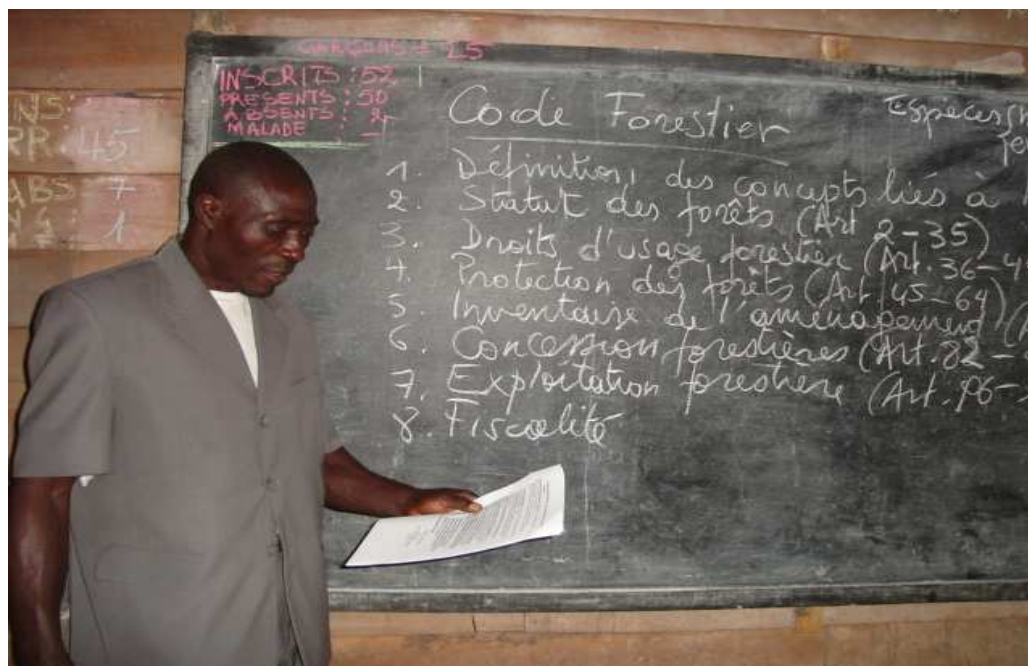 GARÇONS = 25
INSCRITS : 52
PRESENTS : 50
ABSENTS : 2
MALADE : _
NS:
RR: 45
ABS 7
1
Code Forestier
Espèces
1. Définition, des concepts liés à
2. Statut des forêts (Art 2-35)
3. Droits d'usage forestier (Art. 36-
4. Protection des forêts (Art. 45-64)
5. Inventaire de l'aménagement
6. Concession forestières (Art. 82 -
7. Exploitation forestière (Art. 96-
8. Fiscalité